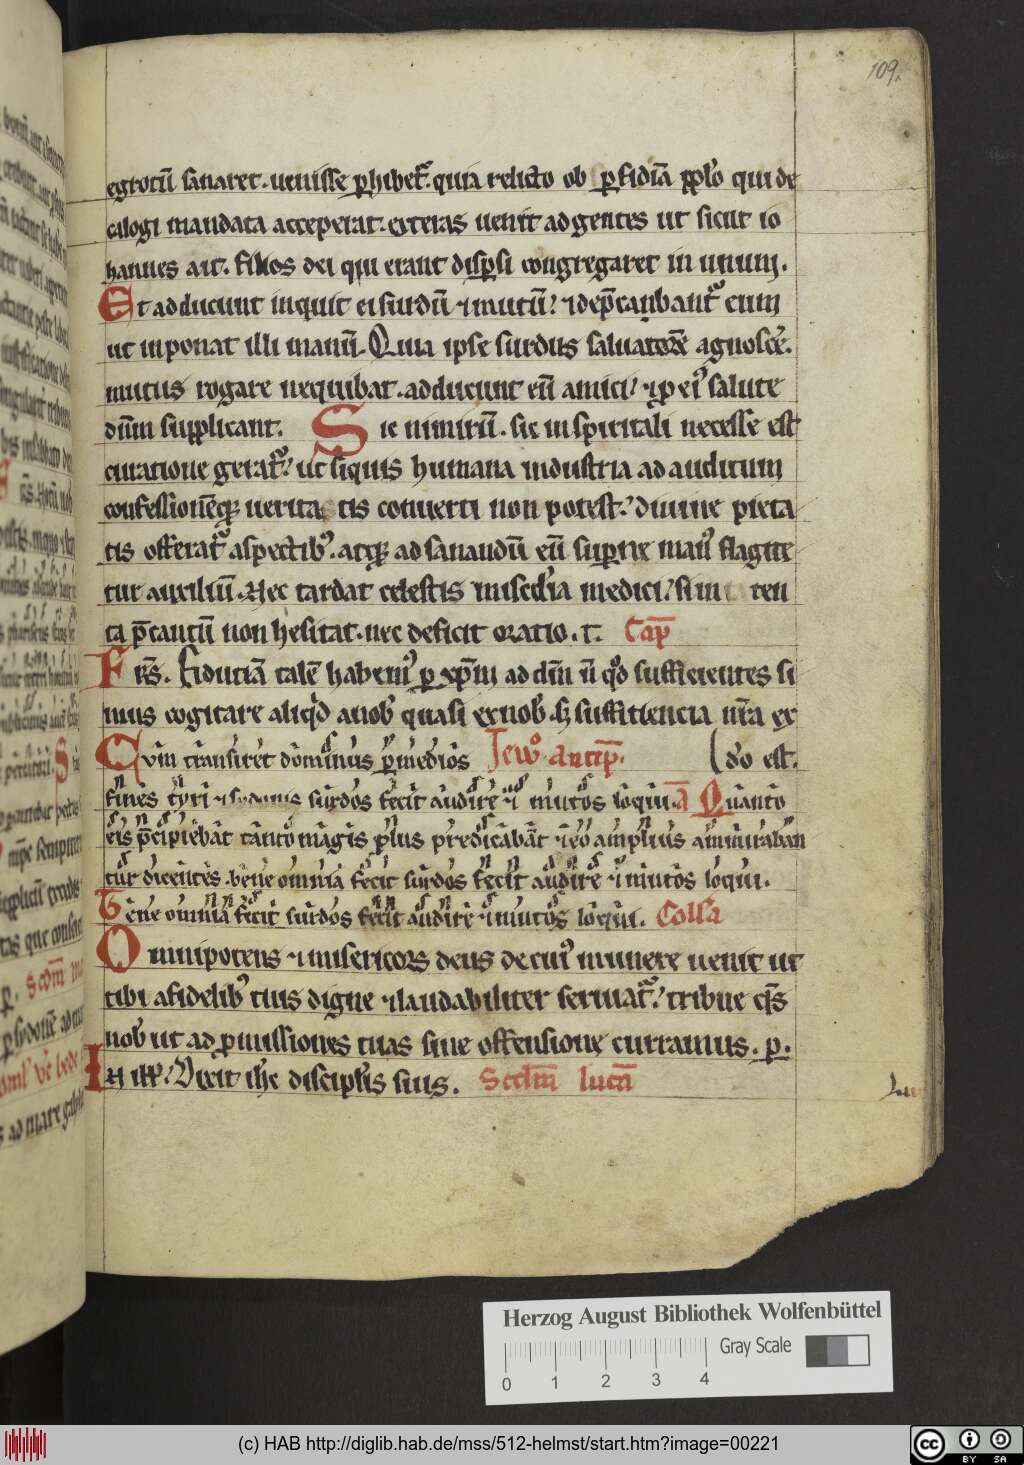 109.
egrotū sanaret. uenisse ꝑhibet᷑. quia relicto ob ꝑfidiā ppl̓o qui de
calogi mandata acceperat. exteras uenit ad gentes ut sicut io
hannes ait. filios dei qui erant disꝑsi congregaret in unum.
Et adducunt inquit ei surdū ⁊ mutū? ⁊ dep̄cabant᷑ eum
ut inponat illi manū. Quia ipse surdus saluatorē agnosce᷑.
mutus rogare nequibat. adducunt eū amici/ ⁊ p ei᷒ salute
dn̄m supplicant. Sic nimirū. sic in spiritali necesse est
curatione gerat᷑/ ut siquis humana industria ad auditum
confessionēq; uerita tis conuerti non potest/ diuine pieta
tis offerat᷑ aspectib᷒. atq; ad sanandū eū supne man᷒ flagite
tur auxiliū. Nec tardat celestis mis̄cdia medici/ si in ten
ta p̄cantū non hesitat. nec deficit oratio. T. Cap̄
Fr̄s. Fiduciā talē habem᷒ ꝑ xp̄m ad dm̄ n̄ qͦd sufficientes si
mus cogitare aliqͥd a nob᷒ quasi ex nob᷒. s; sufficiencia nr̄a ex
Cvm transiret dominus ꝑ medios Ewͦ. Antip̄. (dō est.
fines tyri ⁊ sydonis surdos fecit audire ⁊ mutos loqui. A Quanto
eis p̄cipiebat tanto magis plus predicabāt ⁊ eo amplius ammiraban
tur dicentes. bene omnia fecit surdos fecit audire ⁊ mutos loqui.
Bene omnia fecit surdos fecit audire ⁊ mutos loqui. Coll̄a
Omnipotens ⁊ misericors deus de cui᷒ munere uenit ut
tibi a fidelib᷒ tuis digne ⁊ laudabiliter seruiat᷑/ tribue q̄s
nob᷒ ut ad ꝓmissiones tuas sine offensione curramus. ꝑ.
In ill̄. Dixit ihc discipl̓is suis. Scdm̄ lucā
Herzog August Bibliothek Wolfenbüttel
Gray Scale
0 1 2 3 4
(c) HAB http://diglib.hab.de/mss/512-helmst/start.htm?image=00221
cc BY SA